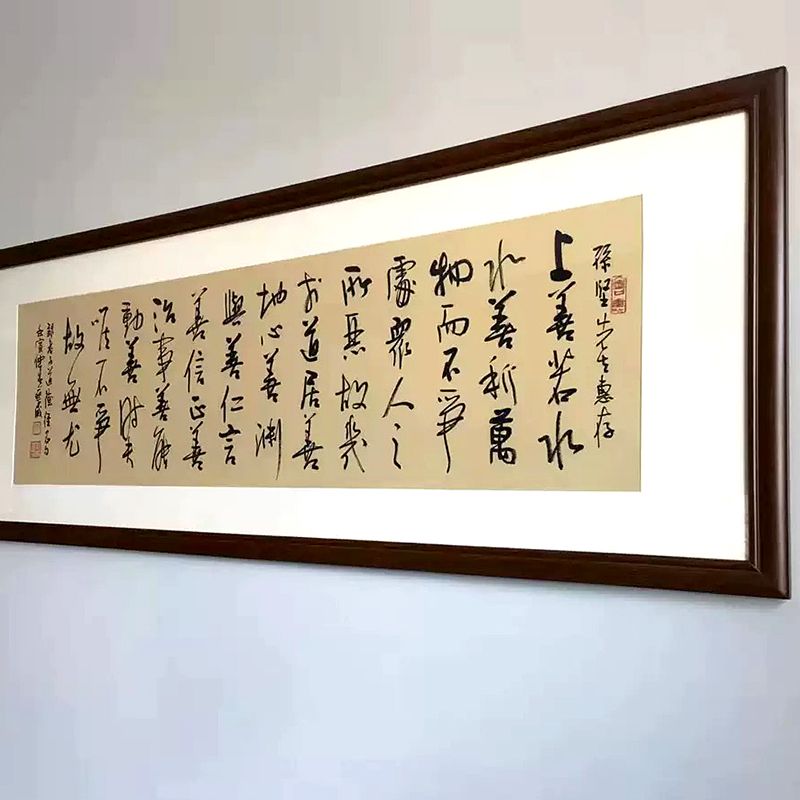 孫堅先生惠存
上善若水
水善利萬
物而不爭
處眾人之
所惡故幾
於道居善
地心善淵
與善仁言
善信正善
治事善能
動善時夫
唯不爭
故無尤
錄老子道德經
壬寅